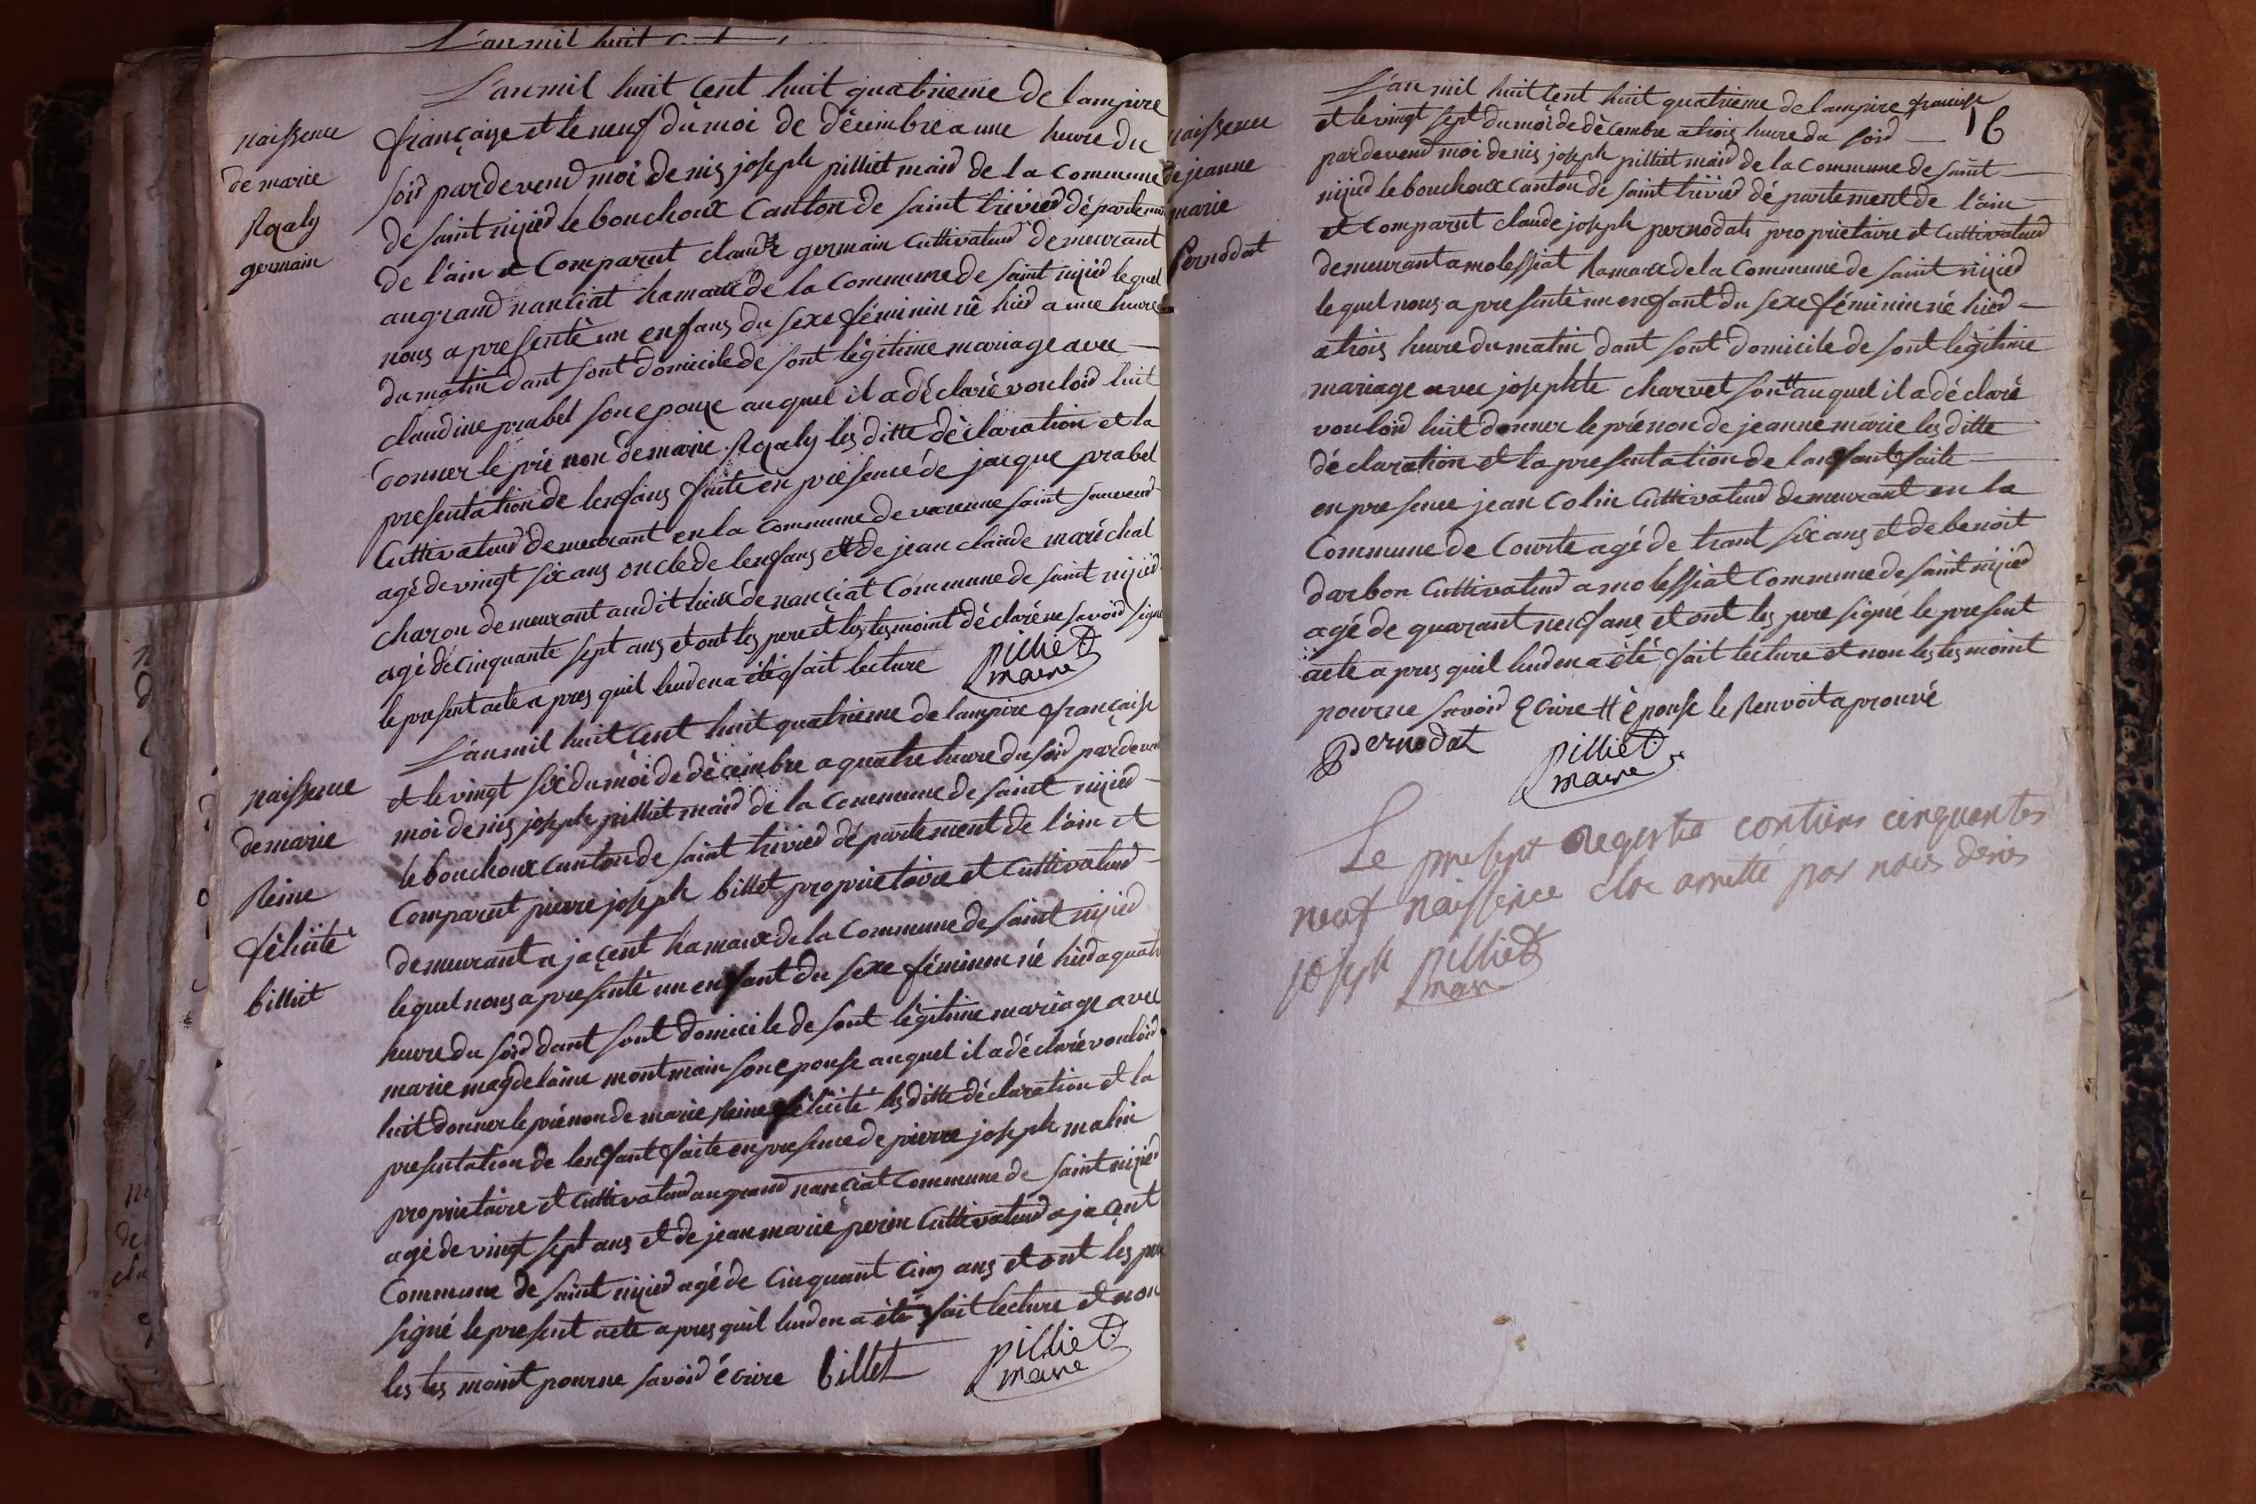 L'an mil huit cent
L'an mil huit cent huit quatrieme de lampire
naissence
de marie
Rogaly
germain
française et le neuf du moi de décembre a une heure du
soir pardevend moi denis joseph pilliet maird de la commune
de saint nizied le bouchoux canton de saint trivied département
de l'ain et comparut claude germain cultivateud demeurant
au grand nanciat hamaux de la commune de saint nizied lequel
nous a presenté un enfans du sexe féminin né hied a une heure
du matin dant sont domicile de sont légitime mariage avec
claudine prabel son epouxe auquel il a déclaré vouloid luit
donner le pré non de marie Rogaly les ditte déclaration et la
presentation de lenfans faite en présence de jacque prabel
cultivateud demeurant en la commune de varenne saint sauveud
agé de vingt six ans oncle de lenfans et de jean claude maréchal
charon demeurant audit lieux de nanciat commune de saint nizied
agé de cinquante sept ans et ont les pere et les tesmoint déclaré ne savoid signe
le present acte a pres quil leud en a été fait lecture pilliet
maire
L'an mil huit cent huit quatrieme de lampire française
naissence
de marie
Reine
félicité
billiet
et le vingt six du moi de décembre a quatre heure du soid pardeven
moi denis joseph pilliet maird de la commune de saint nizied
le bouchoux canton de saint trivied département de l'ain et
comparut pierre joseph billet proprietaire et cultivateud
demeurant a jacent hamaux de la commune de saint nizied
lequel nous a presenté un enfant du sexe féminin né hied a quatre
heure du soid dant sont domicile de sont légitime mariage avec
marie magdelaine montmain son epouse auquel il a déclaré vouloid
luit donner le prénon de marie Reine félicité les ditte déclaration et la
presentation de lenfant faite en presence de pierre joseph malin
proprietaire et cultivateud au grand nanciat commune de saint nizied
agé de vingt sept ans et de jean marie perin cultivateud a jacent
commune de saint nizied agé de cinquant cinq ans et ont les pere
signé le present acte a pres quil leud en a été fait lecture et non
les tes moint pour ne savoid écrire billet pilliet
maire
L'an mil huit cent huit quatrieme de lampire francise
16
naissence
de jeanne
marie
pernodat
et le vingt sept du moi de décembre a trois heure du soid
pardevend moi denis joseph pilliet maird de la commune de saint
nizied le bouchoux canton de saint trivied département de l'ain
et comparut claude joseph pernodats proprietaire et cultivateud
demeurant a molessiat hamaux de la commune de saint nizied
lequel nous a presenté un enfant du sexe féminin né hied
a trois heure du matin dant sont domicile de sont légitime
mariage avec josephte charvet son # auquel il a déclaré
vouloid luit donner le prénon de jeanne marie les ditte
déclaration et la presentation de lanfant faite
en presence jean colin cultivateud demeurant en la
commune de courte agé de trant six ans et de benoit
darbon cultivateud a molessiat commune de saint nizied
agé de quarant neuf ans et ont les pere signé le present
acte a pres quil leud en a été fait lecture et non les tes moint
pour ne savoid ecrire # épouse le renvoit aprouvé
pernodat pilliet
maire
Le present registre contiens cinquantes
neuf naissence clos arretté par nous denis
joseph pilliet
maire